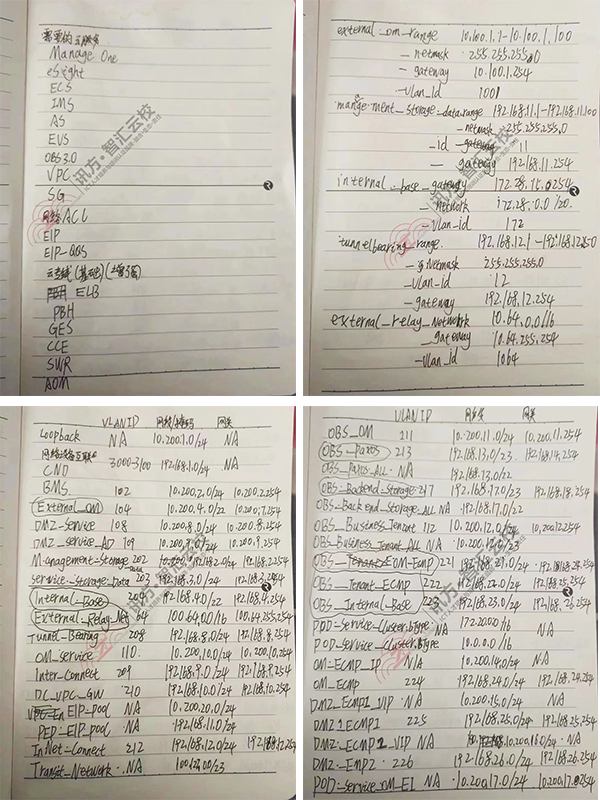 需要的云服务
Manage One
eSight
ECS
IMS
AS
EVS
OBS 3.0
VPC
SG
网络ACL
EIP
EIP-QOS
云专线(基础)(增强)
ELB
PBH
GES
CCE
SWR
AOM
讯方·智汇云校
external_om_range 10.100.1.1-10.100.1.100
-netmask 255.255.255.0
-gateway 10.100.1.254
-vlan_id 1001
management_storage_data_range 192.168.11.1-192.168.11.100
-netmask 255.255.255.0
-id 11
-gateway 192.168.11.254
internal_base_gateway 172.28.15.254
-network 172.28.0.0/20
-vlan_id 172
tunnelbearing_range 192.168.12.1-192.168.12.50
-Netmask 255.255.255.0
-vlan_id 12
-gateway 192.168.12.254
external_relay_network 10.64.0.0/16
_gateway 10.64.255.254
-vlan_id 1064
讯方·智汇云校
VLANID 网段/掩码 网关
Loopback NA 10.200.1.0/24 NA
网络设备互联 3000-3100 192.168.1.0/24 NA
CND
BMS 102 10.200.2.0/24 10.200.2.254
External_OM 104 10.200.4.0/22 10.200.7.254
DMZ-Service 108 10.200.8.0/24 10.200.8.254
DMZ_service_AD 109 10.200.9.0/24 10.200.9.254
Management-Storage 202 192.168.2.0/24 192.168.2.254
service-Storage-Data 203 192.168.3.0/24 192.168.3.254
Internal_Base 204 192.168.4.0/22 192.168.4.254
External_Relay_Net 64 100.64.0.0/16 100.64.255.254
Tunnel-Bearing 208 192.168.8.0/24 192.168.8.254
OM_Service 110 10.200.10.0/24 10.200.10.254
Inter-Connect 209 192.168.9.0/24 192.168.9.254
DC_VPC_GW 210 192.168.10.0/24 192.168.10.254
EIP_Pool NA 10.200.20.0/24
PED-EIP_pool NA 192.168.11.0/24
InNet-Connect 212 192.168.12.0/24 192.168.12.254
Transit_Network NA
讯方·智汇云校
VLANID 网段 网关
OBS_OM 111 10.200.11.0/24 10.200.11.254
OBS_Partos 213 192.168.13.0/23 192.168.14.254
OBS_Partos_All NA 192.168.13.0/22
OBS-Backend_Storage 217 192.168.17.0/23 192.168.18.254
OBS-Backend_Storage_ALL NA 192.168.17.0/22
OBS_Business_Tenant 112 10.200.12.0/24 10.200.12.254
OBS_Business_Tenant_ALL NA 10.200.12.0/23
OBS_OM_Ecmp 221
OBS_Tenant_ECMP 222 192.168.22.0/24 192.168.25.254
OBS_Internal_Base 223 192.168.23.0/24 192.168.26.254
POD-Service-Cluster.btype NA 172.20.0.0/16 NA
POD-Service-Cluster.Btype 10.0.0.0/16
OM-ECMP_IP NA 10.200.14.0/24 NA
OM_Ecmp 224 192.168.24.0/24 192.168.24.254
DMZ-ECMP1_VIP NA 10.200.15.0/24 NA
DMZ1ECMP1 225 192.168.25.0/24 192.168.25.254
DMZ-ECMP2_VIP NA 10.200.16.0/24 NA
DMZ-EMP2 226 192.168.26.0/24 192.168.26.254
POD-service_OM_EI NA 10.200.17.0/24 10.200.17.254
讯方·智汇云校